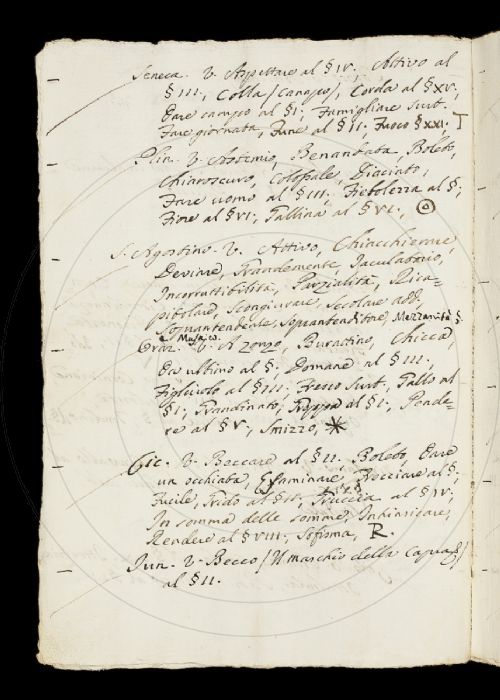 Seneca. V. Aspettare al § IV. Attivo al
§ III., Colla (Canapo), Corda al § XV.,
Dare campo al § I., Famigliare Sust.
Fare giornata, Fune al § II. Fuoco § XXI.
Plin. V. Benandata, Boleto,
Chiaroscuro, Colossale, Giacinto,
Fare uomo al § III. Fievolezza al §,
Fiore al § VI., Gallina al § VI.,
S. Agostino. V. Attivo, Chiacchierare
Devime, Grandemente, Jaculatorio,
Incorruttibilità, Parzialità, Rica-
pitolare, Scongiurare, Secolare add.
Soprantendente, Soprantenditore, Mezzanità §.
e Musaico.
Oraz. V. Azonzo, Burattino, Chicca,
Da ultimo al §. Domane al § III.
al § III. Fresco Sust. Gallo al
§ I., al § I., Pende-
re al § V., Smizzo,
Cic. V. Beccare al § II., Boleto, Dare
un occhiata, Esaminare, Frecciare al §.
Facile, al § IV,
In somma delle somme, Inchinare,
Rendere al § VIII., Sofisma, R.
Jun. V. Becco (Il maschio della Capra)
al § II.